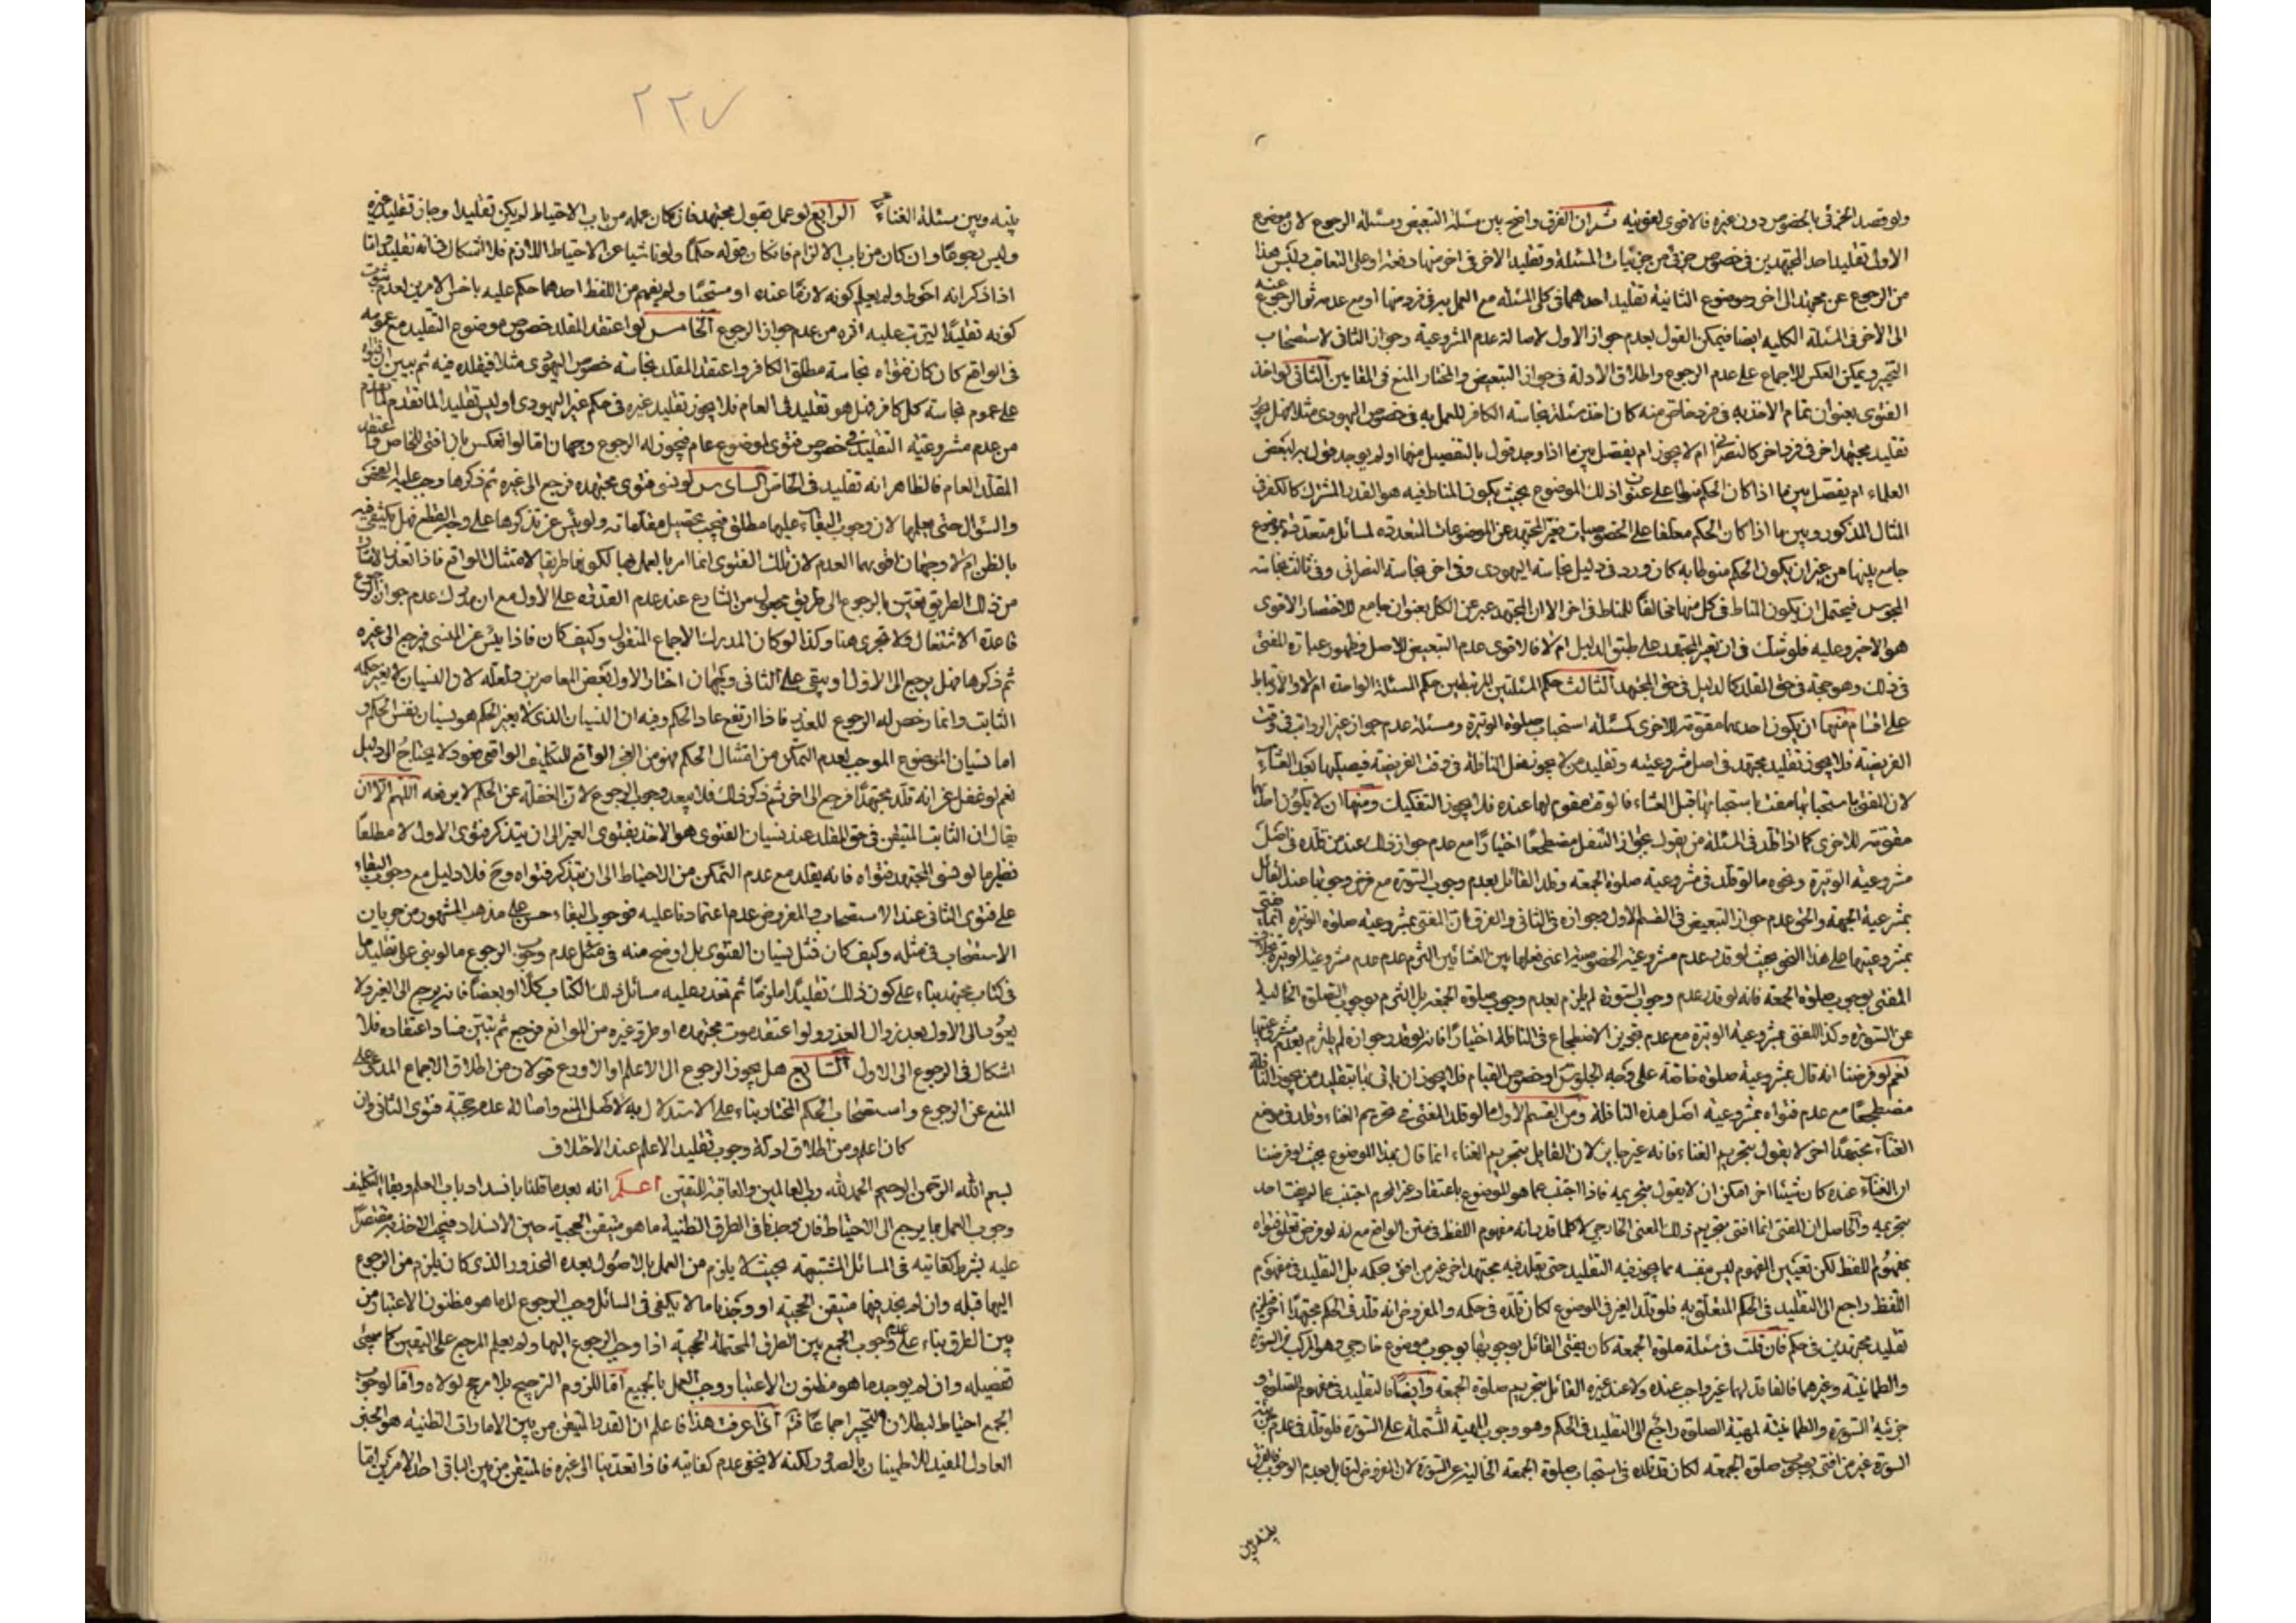 ولو قصد الجزئى بالخصوص دون غيره فالاقوى لغويته ثم ان الفرق واضح بين مسئلة التبعيض ومسئلة الرجوع لان موضوع
الاولى تقليد احد المجتهدين فى خصوص جزئى من جزئيات المسئلة وتقليد الاخر فى اخر منها دفعة او على التعاقب وليس هذا
من الرجوع عن مجتهد الى اخر وموضوع الثانية تقليد احدهما فى كلى المسئلة مع العمل به فى فرد منها او مع عدمه ثم الرجوع عنه
الى الاخر فى المسئلة الكلية ايضا فيمكن القول بعدم جواز الاول لاصالة عدم المشروعية وجواز الثانى لاستصحاب
التخيير ويمكن العكس للاجماع على عدم الرجوع واطلاق الادلة فى جواز التبعيض والمختار المنع فى المقامين الثانى لو اخذ
الفتوى بعنوان تمام الاخذ به فى فرد خاص منه كان اخذ مسئلة نجاسة الكافر للعمل به فى خصوص اليهودى مثلا فهل يجوز
تقليد مجتهد اخر فى فرد اخر كالنصرانى ام لا يجوز ام يفصل بين ما اذا وجد قول بالتفصيل منهما او لم يوجد قول به لبعض
العلماء ام يفصل بين ما اذا كان الحكم منوطا على عنوان ذلك الموضوع بحيث يكون المناط فيه هو القدر المشترك كالكفر فى
المثال المذكور وبين ما اذا كان الحكم معلقا على الخصوصيات فعبر المجتهد عن الموضوعات المتعدده لمسائل متعددة بموضوع
جامع بينها من غير ان يكون الحكم منوطا به كان ورد فى دليل نجاسة اليهودى وفى اخر نجاسة النصرانى وفى ثالث نجاسة
المجوس فيحتمل ان يكون المناط فى كل منها مخالفا للمناط فى اخر الا ان المجتهد عبر عن الكل بعنوان جامع للاختصار الاقوى
هو الاخير وعليه فلو شك فى ان تعبير المجتهد على طبق الدليل ام لا فالاقوى عدم التبعيض للاصل وظهور عبارة المفتى
فى ذلك وهو حجة فى حق المقلد كالدليل فى حق المجتهد الثالث حكم المسئلتين المرتبطين حكم المسئلة الواحدة ام لا والارتباط
على اقسام منها ان يكون احديهما مقومة للاخرى كمسئلة استحباب صلوة الوتيرة ومسئلة عدم جواز غير الرواتب فى وقت
الفريضة فلا يجوز تقليد مجتهد فى اصل مشروعيته وتقليد من لا يجوز فعل النافلة فى وقت الفريضة فيصليها بعد العشاء
لان المفتى باستحبابها مفت باستحبابها قبل العشاء فالوقت مقوم لها عنده فلا يجوز التفكيك ومنها ان لا يكون احدهما
مقومة للاخرى كما اذا قلد فى المسئلة من يقول بجواز التنفل مضطجعا اختيارا مع عدم جواز ذلك عند من قلده فى اصل
مشروعية الوتيرة ونحوه ما لو قلد فى مشروعية صلوة الجمعة وقلد القائل بعدم وجوب السورة مع فرض وجوبها عند القائل
بمشروعية الجمعة والحق عدم جواز التبعيض فى القسم الاول وجوازه فى الثانى والفرق ان المفتى بمشروعية صلوة الوتيرة انما افتى
بمشروعيتها على هذا النحو بحيث لو قدر عدم مشروعية الخصوصية اعنى فعلها بين العشائين التزم عدم مشروعية الوتيرة بخلاف
المفتى بوجوب صلوة الجمعة فانه لو قدر عدم وجوب السورة لم يلتزم بعدم وجوب صلوة الجمعة بل التزم بوجوب الصلوة الخالية
عن السورة وكذا المفتى بمشروعية الوتيرة مع عدم تجويز الاضطجاع فى النافلة اختيارا فانه لو قدر جوازه لم يلتزم بعدم مشروعيتها
نعم لو فرضنا انه قال بمشروعية صلوة خاصة على وجه الجلوس او خصوص القيام فلا يجوز ان ياتى بها بتقليد من يجوز النافلة
مضطجعا مع عدم فتواه بمشروعية اصل هذه النافلة ومن القسم الاول ما لو قلد المفتى فى تحريم الغناء وقلد فى موضوع
الغناء مجتهدا اخر لا يقول بتحريم الغناء فانه غير جايز لان القايل بتحريم الغناء انما قال بهذا الموضوع بحيث لو فرضنا
ان الغناء عنده كان شيئا اخر امكن ان لا يقول بتحريمه فاذا اجتنب عما هو الموضوع باعتقاد غير المحرم اجتنب عما لم يفت احد
بتحريمه والحاصل ان المفتى انما افتى بتحريم ذلك المعنى الخارجى لا كلما قدر انه مفهوم اللفظ فى متن الواقع مع انه لو فرض تعلق فتواه
بمفهوم اللفظ لكن تعيين المفهوم ليس بنفسه مما يجوز فيه التقليد حتى يقلد فيه مجتهد اخر غير من افتى بحكمه بل التقليد فى مفهوم
اللفظ راجع الى التقليد فى الحكم المتعلق به فلو قلد الغير فى الموضوع لكان قلده فى حكمه والمفروض انه قلد فى الحكم مجتهدا اخر فيلزم
تقليد مجتهدين فى حكم فان قلت فى مسئلة صلوة الجمعة كان يفتى القائل بوجوبها بوجوب موضوع خارجى وهو المركب من السورة
والطمانينة وغيرهما فالفاقد لها غير واجب عنده ولا عند غيره القائل بتحريم صلوة الجمعة وايضا فالتقليد فى مفهوم الصلوة و
جزئية السورة والطمانينة لمهية الصلوة راجع الى التقليد فى الحكم وهو وجوب المهية المشتملة على السورة فلو قلد فى عدم جزئية
السورة غير من افتى بوجوب صلوة الجمعة لكان قد قلده فى استحباب صلوة الجمعة الخالية عن السورة لان المفروض انه قايل بعدم الوجوب فالفرق
بينه وبين
٢٢٧
بينه وبين مسئلة الغناء الرابع لو عمل بقول مجتهد فان كان عمله من باب الاحتياط لم يكن تقليدا وجاز تقليد غيره
وليس رجوعا وان كان من باب الالزام فان كان قوله حكما ولو ناشيا عن الاحتياط اللازم فلا اشكال فى انه تقليد واما
اذا ذكر انه احوط ولم يعلم كونه لازما عنده او مستحبا ولم يفهم من اللفظ احدهما حكم عليه باخس الامرين لعدم ثبوت
كونه تقليدا ليترتب عليه اثره من عدم جواز الرجوع الخامس لو اعتقد المقلد خصوص موضوع التقليد مع عمومه
فى الواقع كان كان فتواه نجاسة مطلق الكافر واعتقد المقلد نجاسة خصوص اليهودى مثلا فيقلده فيه ثم يتبين ان فتواه
على عموم نجاسة كل كافر فهل هو تقليد فى العام فلا يجوز تقليد غيره فى حكم غير اليهودى او ليس تقليدا لما تقدم
من عدم مشروعية التقليد فى خصوص فتوى لموضوع عام فيجوز له الرجوع وجهان اما لو انعكس بان افتى للخاص واعتقد
المقلد العام فالظاهر انه تقليد فى الخاص السادس لو نسى فتوى مجتهده فرجع الى غيره ثم ذكرها وجب عليه الفحص
والسؤال حتى يعلمها لان وجوب البقاء عليها مطلق فيجب تحصيل مقدماته ولو يئس عن تذكرها على وجه القطع فهل يكتفى فيه
بالظن ام لا وجهان اقويهما العدم لان تلك الفتوى انما امر بالعمل بها لكونها طريقا لامتثال الواقع فاذا تعذر الامتثال
من ذلك الطريق تعين بالرجوع الى طريق مجعول من الشارع عند عدم القدرة على الاول مع ان مدرك عدم جواز الرجوع
قاعدة الاشتغال ولا تجرى هنا وكذا لو كان المدرك الاجماع المنقول وكيف كان فاذا يئس عن المنسى فرجع الى غيره
ثم ذكرها فهل يرجع الى الاول او يبقى على الثانى وجهان اختار الاول بعض المعاصرين ولعله لان النسيان لا يغير حكمه
الثابت وانما رخص له الرجوع للعذر فاذا ارتفع عاد الحكم وفيه ان النسيان الذى لا يغير الحكم هو نسيان نفس الحكم و
اما نسيان الموضوع الموجب لعدم التمكن من امتثال الحكم فهو من العجز الواقع للتكليف الواقعى فعوده لا يحتاج الى دليل
نعم لو غفل عن انه قلد مجتهدا فرجع الى اخر ثم ذكر ذلك فلا يبعد وجوب الرجوع لان الغفلة عن الحكم لا يرفعه اللهم الا ان
يقال ان الثابت المتيقن فى حق المقلد عند نسيان الفتوى هو الاخذ بفتوى الغير الى ان يتذكر فتوى الاول لا مطلقا
نظير ما لو نسى المجتهد فتواه فانه يقلد مع عدم التمكن من الاحتياط الى ان يتذكر فتواه وح فلا دليل مع وجوب البقاء
على فتوى الثانى عند الاستصحاب والمفروض عدم اعتمادنا عليه فوجوب البقاء حسن على مذهب المشهور من جريان
الاستصحاب فى مثله وكيف كان فمثل نسيان الفتوى بل اوضح منه فى مثل عدم وجوب الرجوع ما لو بنى على تقليد ما
فى كتاب مجتهد بناء على كون ذلك تقليدا ملزما ثم تعذر عليه مسائل ذلك الكتاب كلا او بعضا فانه يرجع الى الغير ولا
يعود الى الاول بعد زوال العذر ولو اعتقد موت مجتهده او طرو غيره من الموانع فرجع ثم تبين فساد اعتقاده فلا
اشكال فى الرجوع الى الاول السابع هل يجوز الرجوع الى الاعلم او الاورع قولان من اطلاق الاجماع المدعى على
المنع عن الرجوع واستصحاب الحكم المختار بناء على الاستدلال به لاصل المنع واصالة عدم حجية فتوى الثانى وان
كان اعلم ومن اطلاق ادلة وجوب تقليد الاعلم عند الاختلاف
بسم الله الرحمن الرحيم الحمد لله رب العالمين والعاقبة للمتقين اعلم انه بعد ما قلنا بانسداد باب العلم وبقاء التكليف
وجوب العمل بما يرجع الى الاحتياط فان وجدنا فى الطرق الظنية ما هو متيقن الحجية حين الانسداد فيجب الاخذ به مقتصرا
عليه بشرط كفايته فى المسائل المشتبهة بحيث لا يلزم من العمل بالاصول بعده المحذور الذى كان يلزم من الرجوع
اليها قبله وان لم نجد فيها متيقن الحجية او وجدنا ما لا يكفى فى المسائل وجب الرجوع لما هو مظنون الاعتبار من
بين الطرق بناء على عدم وجوب الجمع بين الطرق المحتملة الحجية اذا وجب الرجوع اليها ولم يعلم المرجع على التعيين كما سيجئ
تفصيله وان لم يوجد ما هو مظنون الاعتبار وجب العمل بالجميع اما للزوم الترجيح بلا مرجح لولاه واما لوجوب
الجمع احتياطا لبطلان التخيير اجماعا اذا عرفت هذا فاعلم ان القدر المتيقن من بين الامارات الظنية هو الخبر
العادل المفيد للاطمينان بالصدور لكنه لا يخفى عدم كفايته فاذا تعدينا الى غيره فالمتيقن من بين الباقى احد الامرين اما